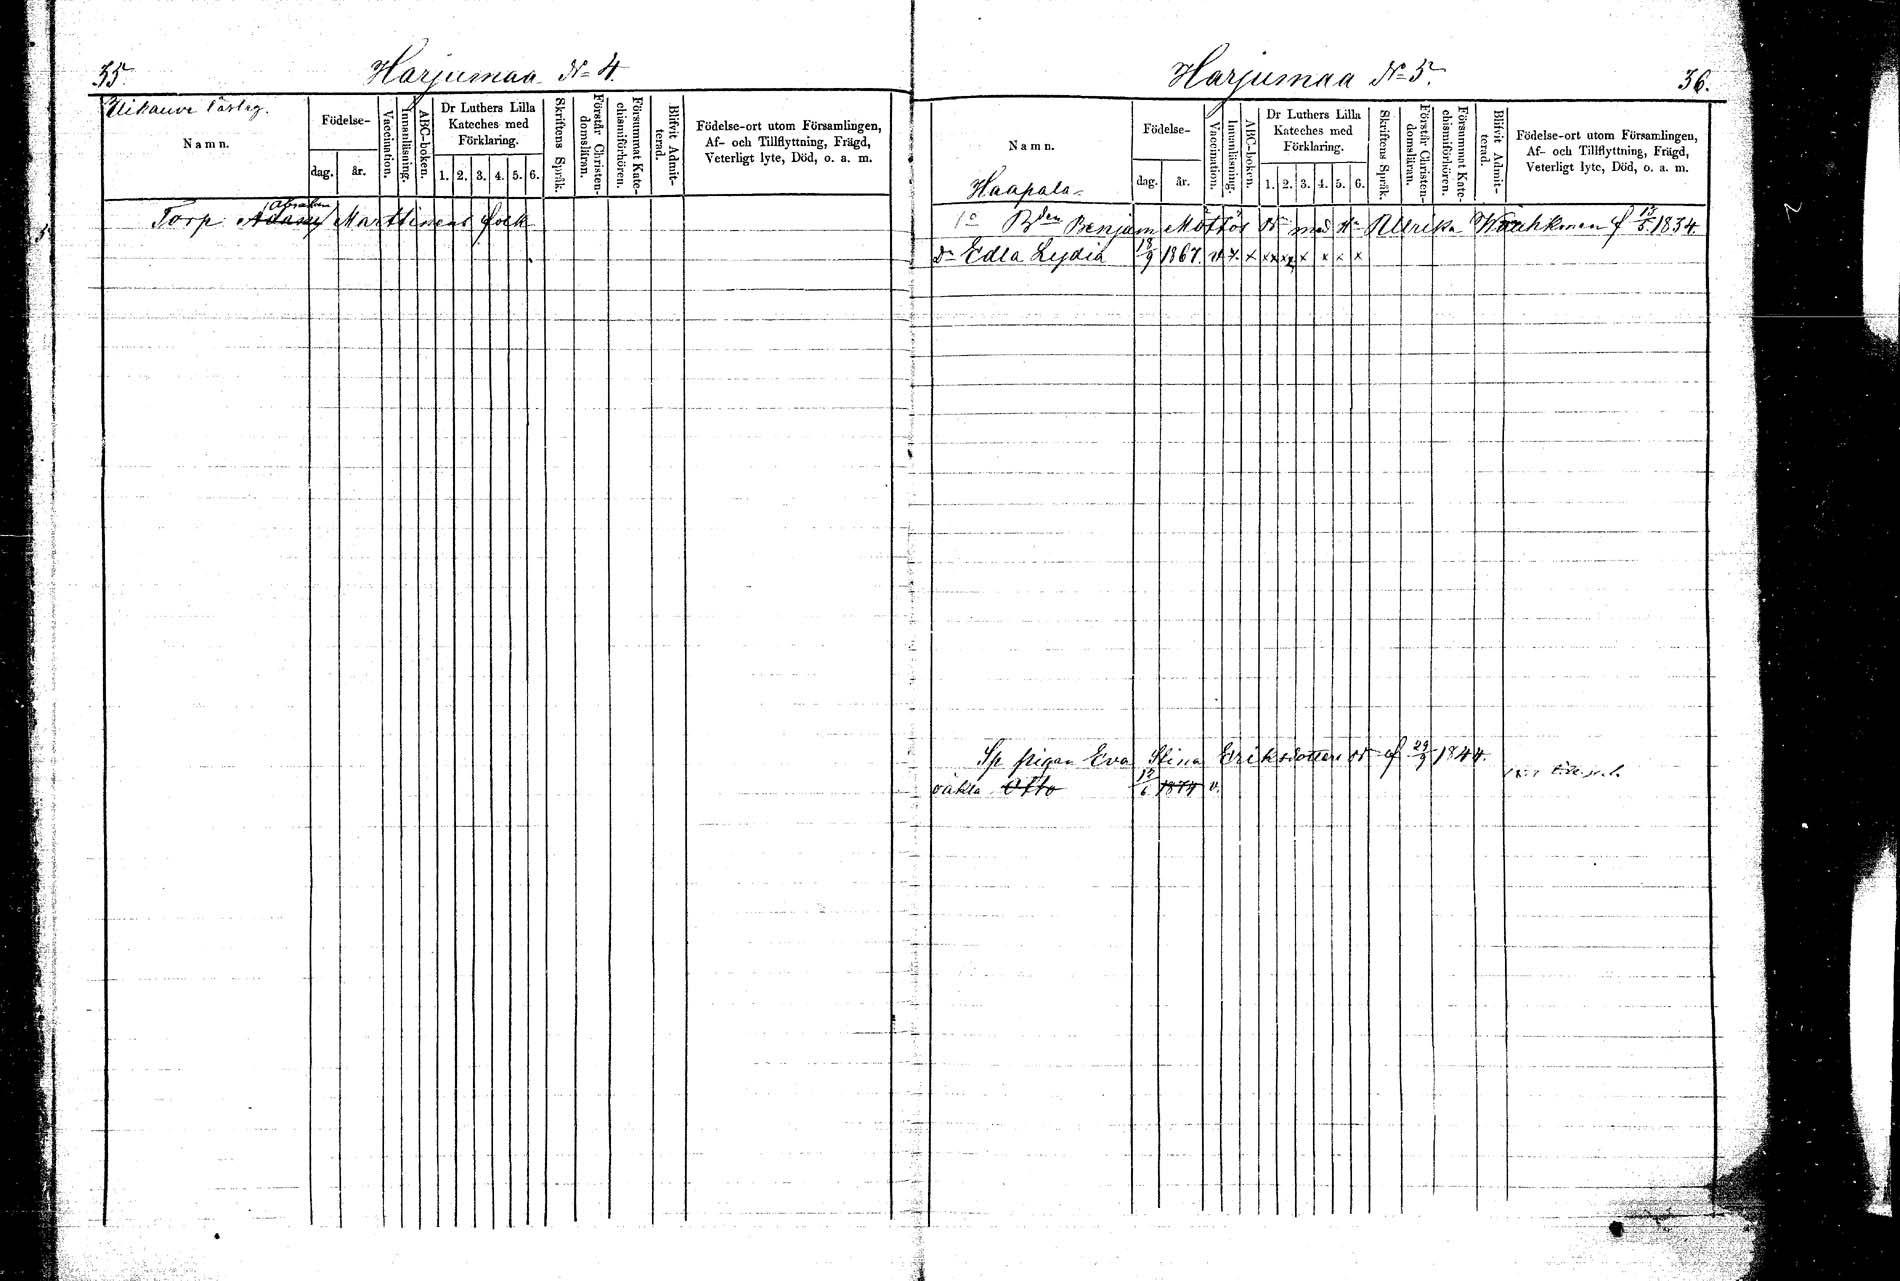 35.
Harjumaa № 4.
Namn.
Födelse-
dag.
år.
Vaccination.
Innanläsning.
ABC-boken.
Dr Luthers Lilla
Kateches med
Förklaring.
1. 2. 3. 4. 5. 6.
Skriftens Språk.
Förstår Christen-
domsläran.
Försummat Kate-
chismiförhören.
Blifvit Admit-
terad.
Födelse-ort utom Församlingen,
Af- och Tillflyttning, Frägd,
Veterligt lyte, Död, o. a. m.
Abraham
Torp. Adam Marttinens folk
Harjumaa № 5.
36.
Namn.
Haapala
Födelse-
dag.
år.
Vaccination.
Innanläsning.
ABC-boken.
Dr Luthers Lilla
Kateches med
Förklaring.
1. 2. 3. 4. 5. 6.
Skriftens Språk.
Förstår Christen-
domsläran.
Försummat Kate-
chismiförhören.
Blifvit Admit-
terad.
Födelse-ort utom Församlingen,
Af- och Tillflyttning, Frägd,
Veterligt lyte, Död, o. a. m.
1o Bden Benjam Möttös med Hu Ulrika f 1834
Dr Edla Lydia 18/9 1867. v x x x x x x x x
Sp pigan Eva Stina Eriksdotters f 29/9 1844.
oäkta Otto 12/6 1874 v.